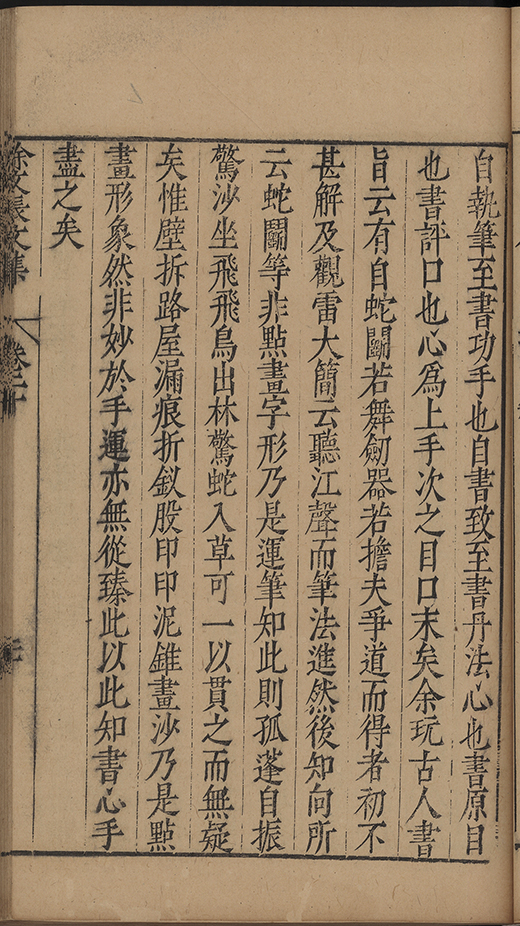 自執筆至書功手也自書致至書丹法心也書原目
也書評口也心爲上手次之目口末矣余玩古人書
旨云有自蛇鬬若舞劒器若擔夫爭道而得者初不
甚解及觀雷大簡云聽江聲而筆法進然後知向所
云蛇鬬等非點畫字形乃是運筆知此則孤蓬自振
驚沙坐飛飛鳥出林驚蛇入草可一以貫之而無疑
矣惟壁拆路屋漏痕折釵股印印泥錐畫沙乃是㸃
畫形象然非妙於手運亦無從臻此以此知書心手
盡之矣
徐文長文集
卷二十